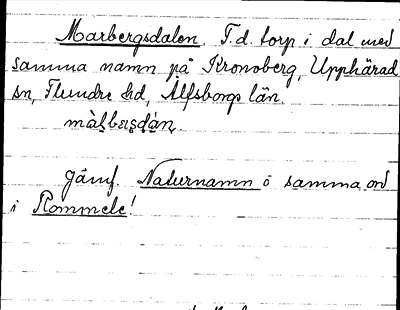 Marbergsdalen. F.d. torp i dal med
samma namn på Kronoberg, Upphärad
sn, Flundre hd, Älfsborgs län.
Jämf. Naturnamn å samma ord
i Rommele!